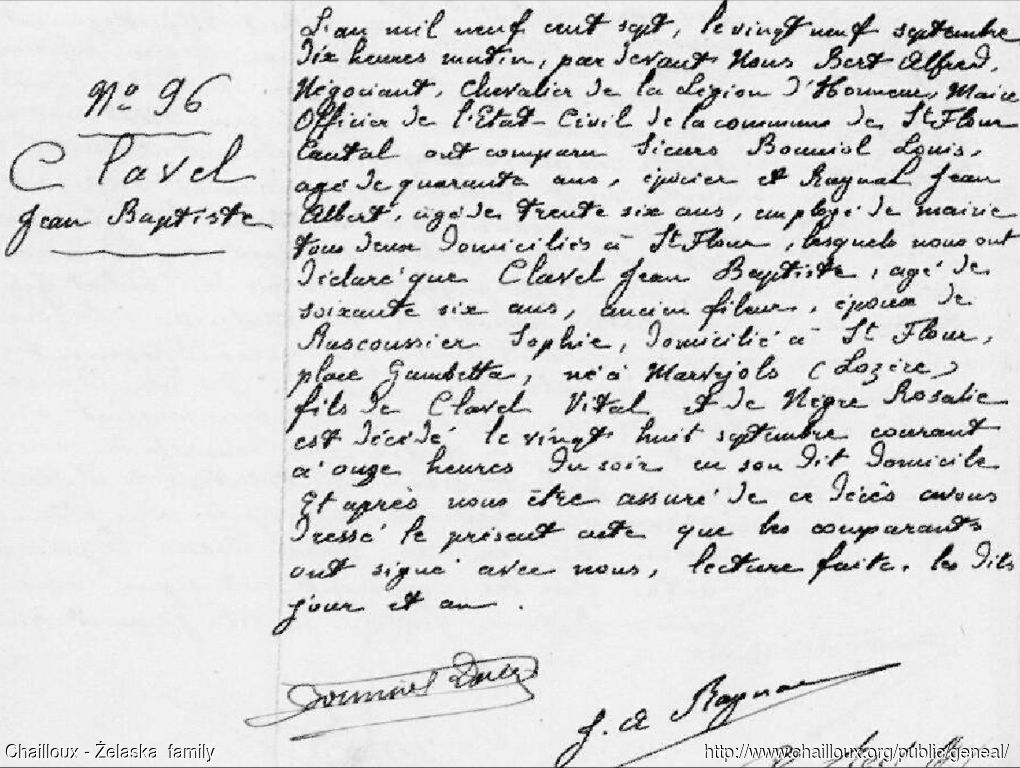 Nº 96
Clavel
Jean Baptiste
L'an mil neuf cent sept, le vingt neuf septembre
dix heures matin, par devant Nous Bert Alfred,
Négociant, Chevalier de la Légion d'Honneur, Maire
Officier de l'Etat-Civil de la commune de St Flour
Cantal ont comparu Sieurs Bonniol Louis,
agé de quarante ans, épicier et Raynal Jean
Albert, agé de trente six ans, employé de mairie
tous deux domiciliés à St Flour, lesquels nous ont
déclaré que Clavel Jean Baptiste, agé de
soixante six ans, ancien fileur, époux de
Ruscoussier Sophie, domicilié à St Flour,
place Gambetta, né à Marvejols (Lozère)
fils de Clavel Vital et de Nègre Rosalie
est décédé le vingt huit septembre courant
à onze heures du soir en son dit domicile
Et après nous être assuré de ce décès avons
dressé le présent acte que les comparants
ont signé avec nous, lecture faite, les dits
jour et an.
J. A Raynal
Chailloux - Želaska family
http://www.chailloux.org/public/geneal/